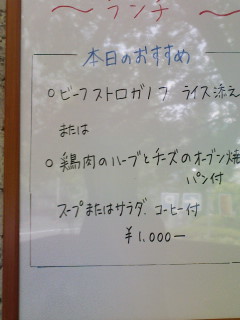 〜ランチ〜
本日のおすすめ
○ビーフストロガノフ ライス添え
または
○鶏肉のハーブとチーズのオーブン焼
パン付
スープまたはサラダ、コーヒー付
¥1,000－